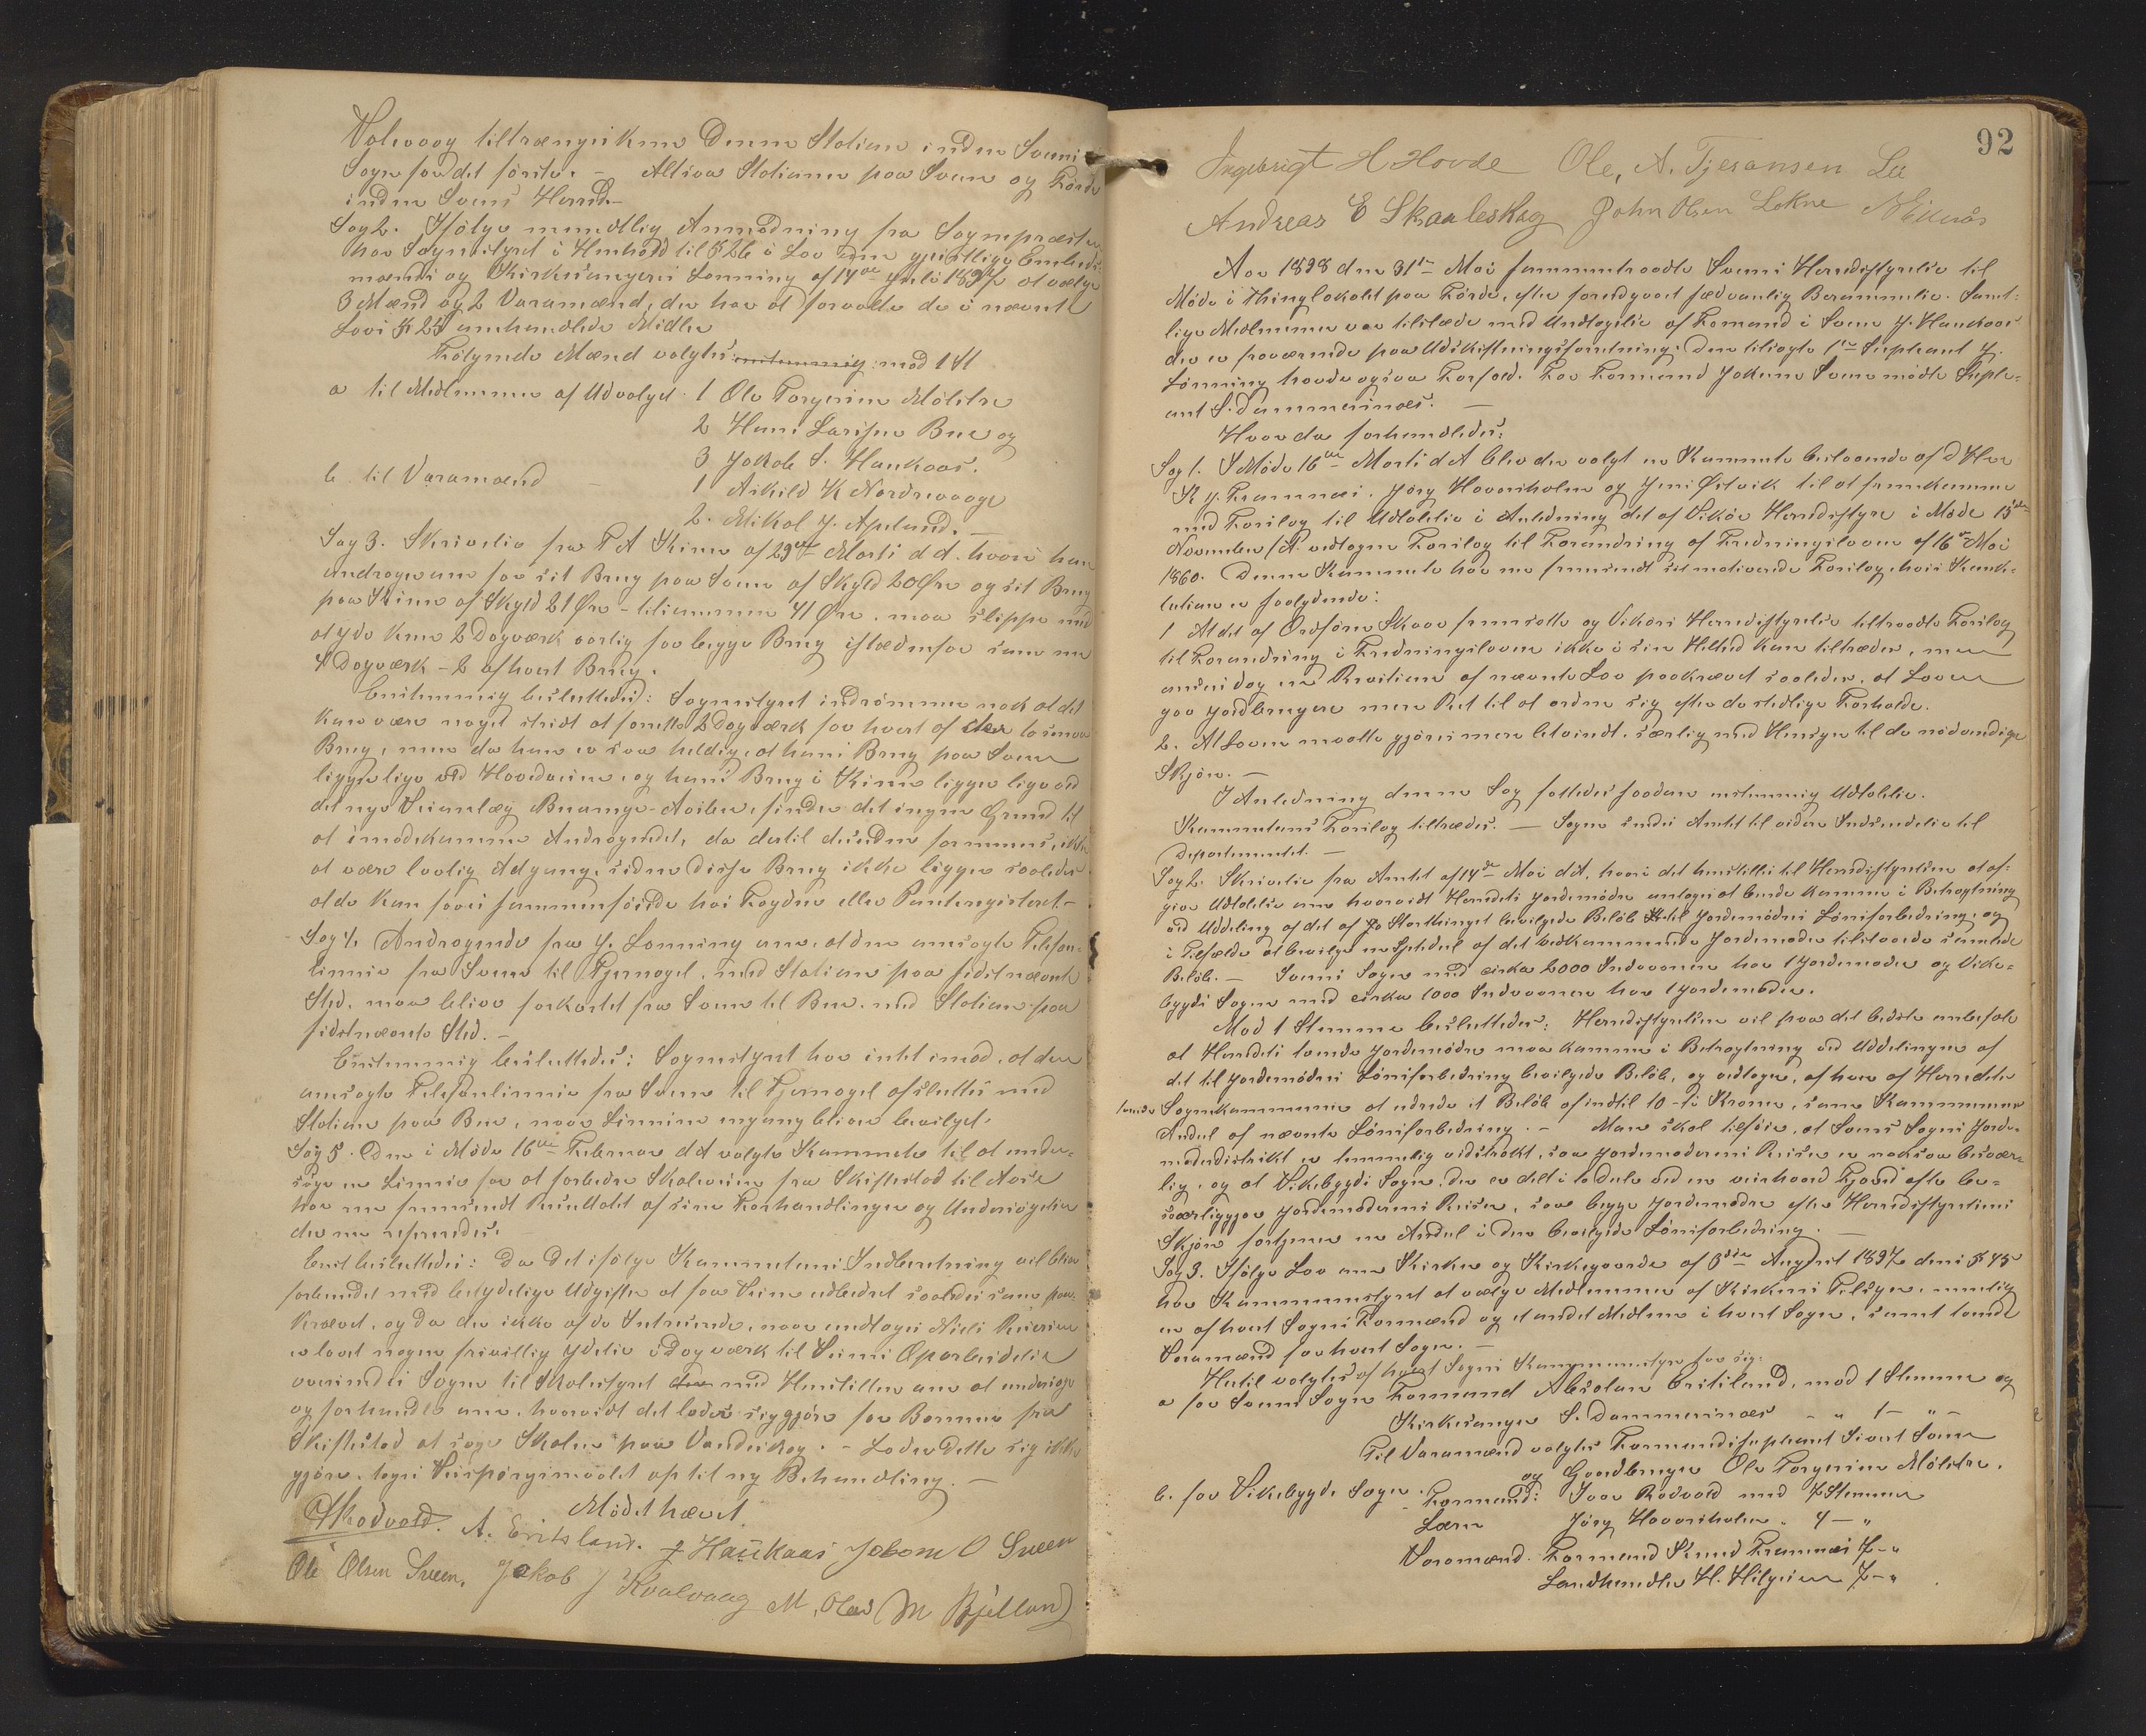 Valevaag tiltrænges kun Denne Station inden Sveens
Sogn for det første. - Altsaa Stationer paa Sveen og Førde
inden Sveens Herred. -
Sag 2. Ifølge mundtlig Anmodning fra Sognepræsten
har Sognestyret i Henhold til § 26 i Lov om geistlige Embeds-
mænds og Kirkesangeres Lønning af 14de Juli 1897 at vælge
3 Mænd og 2 Varamænd, der har at forvalte de i nævnte
Lovs § 25 omhandlede Midler
Følgende Mænd valgtes mod 1 St
a til Medlemmer af Udvalget 1 Ole Torgersen Mølstre
2 Hans Larssen Bue og
3 Jakob S. Haukaas.
b. til Varamænd 1 Askild K Nordnevaage
2. Mikal J. Apeland. -
Sag 3. Skrivelse fra T A Stime af 29de Marts d A. hvori han
andrager om for sit Brug paa Sveen af Skyld 20 Øre og sit Brug
paa Stime af Skyld 21 Øre - tilsammen 41 Øre, maa slippe med
at yde kun 2 Dagværk aarlig for begge Brug istedenfor som nu
4 Dagværk - 2 af hvert Brug.
Enstemmig besluttedes: Sognestyret indrømmer nok at det
kan være noget stridt at forrette 2 Dagværk for hvert af de to smaa
Brug, men da han er saa heldig, at hans Brug paa Sveen
ligger lige ved Hovedveien og hans Brug i Stime ligger lige ved
det nye Veianlæg Buavaage-Aarbø, findes det ingen Grund til
at imødekomme Andragendet, da dertil desuden formenes, ikke
at være lovlig Adgang, siden disse Brug ikke ligger saaledes
at de kan faaes sammenføiede hos Fogden eller Panteregisteret. -
Sag 4. Andragende fra J. Lønning om, at den ansøgte Telefon-
linie fra Sveen til Tjernagel, med Station paa sidstnævnte
Sted, maa bliver forkortet fra Sveen til Bue, med Station paa
sidstnævnte Sted. -
Enstemmig besluttedes: Sognestyret har intet imod, at den
ansøgte Telefonlinnie fra Sveen til Tjernagel afsluttes med
Station paa Bue, naar Linnien engang bliver bevilget.
Sag 5. Den i Møde 16de Februar d A valgte Kommite til at under-
søge en Linnie for at forbedre Skoleveien fra Skiftestad til Aase
har nu fremsendt Resultatet af sine Forhandlinger og Undersøgelser
der nu refereredes.
Enst besluttedes: Da det ifølge Kommiteens Indberetning vil blive
forbundet med betydelige Udgifter at faa Veien udbedret saaledes som paa-
krævet, og da der ikke af de Interesserede, naar undtages Niels Reiersen
er lovet nogen frivillig Ydelse i Dagværk til Veiens Oparbeidelse
oversendes Sagen til Skolestyret med Henstillen om at undersøge
og forhandle om, hvorvidt det lader sig gjøre for Børnene fra
Skiftestad at søge Skolen paa Vandeskog. - Lader dette sig ikke
gjøre, toges Veispørgsmaalet op til ny Behandling. -
Mødet hævet.
A. Eritsland. J Haukaas Jakob O Sveen
Ole Olsen Sveen, Jakob J Kvalvaag M. Olas M Bjelland
92
Ingebrigt H Hovde Ole, A. Tjeransen Lee
Andreas E Skaaleskag John Olsen Løkne
Aar 1898 den 31te Mai sammentraadte Sveens Herredsstyrelse til
Møde i Thinglokalet paa Førde, efter forudgaaet sædvanlig Berammelse. Samt-
lige Medlemmer var tilstæde med Undtagelse af Formand i Sveen J. Haukaas
der er fraværende paa Udskiftningsforretning. Den tilsagte 1ste Supleant J.
Lønning havde ogsaa Forfald. For Formand Jakob Sveen mødte Suple-
ant S. Dammersnæs. -
Hvor da forhandledes:
Sag 1. I Møde 16de Marts d A blev der valgt en Kommite bestaaende af D'Hrr
K. J. Framnæs, Jørg Havorsholm og Jens Østvik til at fremkomme
med Forslag til Udtalelse i Anledning det af Vikør Herredsstyre i Møde 15de
November f A. vedtagne Forslag til Forandring af Fredningsloven af 16de Mai
1860. Denne Kommite har nu fremsendt sit motiverede Forslag, hvis Konk-
lusion er saalydende:
1 At det af Ordfører Skaar fremsatte og Vikørs Herredsstyrelse tiltraadte Forslag
til Forandring i Fredningsloven ikke i sin Helhed kan tiltrædes, men
ansees dog en Revision af nævnte Lov paakrævet saaledes, at Loven
gav Jordbrugere mere Ret til at ordne sig efter de stedlige Forholde.
2. At Loven maatte gjøres mere letvindt, særlig med Hensyn til de nødvendige
Skjøn. -
I Anledning denne Sag fattedes saadan enstemmig Udtalelse.
Kommiteens Forslag tiltrædes. - Sagen sendes Amtet til videre Indsendelse til
Departementet. -
Sag 2. Skrivelse fra Amtet af 14de Mai d A, hvori det henstilles til Herredsstyrelsen at af-
give Udtalelse om hvorvidt Herredets Jordemødre antages at burde komme i Betragtning
ved Uddeling af det af Storthinget bevilgede Beløb til Jordemødres Lønsforbedring, og
i Tilfælde at bevilge en Andel af det vedkommende Jordemoder tilstaaede samlede
Beløb. - Sveens Sogn med cirka 2000 Indvaanere har 1 Jordemoder og Vike-
bygds Sogn med cirka 1000 Indvaanere har 1 Jordemoder.
Mod 1 Stemme besluttedes: Herredsstyrelsen vil paa det bedste anbefale
at Herredets tvende Jordemødre maa komme i Betragtning ved Uddelingen af
det til Jordemødres Lønsforbedring bevilgede Beløb, og vedtager, af hver af Herredets
tvende Sognekommuner at udrede et Beløb af indtil 10 - ti Kroner, som Kommunens
Andel af nævnte Lønsforbedring. - Man skal tilføie, at Sveens Sogns Jorde-
moderdistrikt er temmelig vidstrakt, saa Jordemoderens Reiser er nok saa besvær-
lig, og at Vikebygds Sogn, der er delt i to dele ved en veirhaard Fjord ofte be-
sværliggjør Jordemoderens Reiser, saa begge Jordemødre efter Herredsstyrelsens
Skjøn fortjener en Andel i den bevilgede Lønsforbedring. -
Sag 3. Ifølge Lov om Kirker og Kirkegaarde af 3die August 1897 dens § 45
har Kommunestyret at vælge Medlemmer af Kirkens Tilsyn, nemlig
en af hvert Sogns Formænd og et andet Medlem i hvert Sogn, samt tvende
Varamænd for hvert Sogn. -
Hertil valgtes af hvert Sogns Kommunestyre for sig:
a for Sveens Sogn Formand Absolon Eritsland, mod 1 Stemme og
Kirkesanger S. Dammersnæs - " 1 - " -
Til Varamænd valgtes Formandssupleant Sivert Sveen
og Gaardbruger Ole Torgersen Mølstre.
b. for Vikebygds Sogn Formand: Ivar Rødvold med 7 Stemmer
Lærer Jørg Havorsholm " 4 - "
Varamænd. Formand Knud Framnæs 7 - "
Landhandler H. Helgesen 7 - "